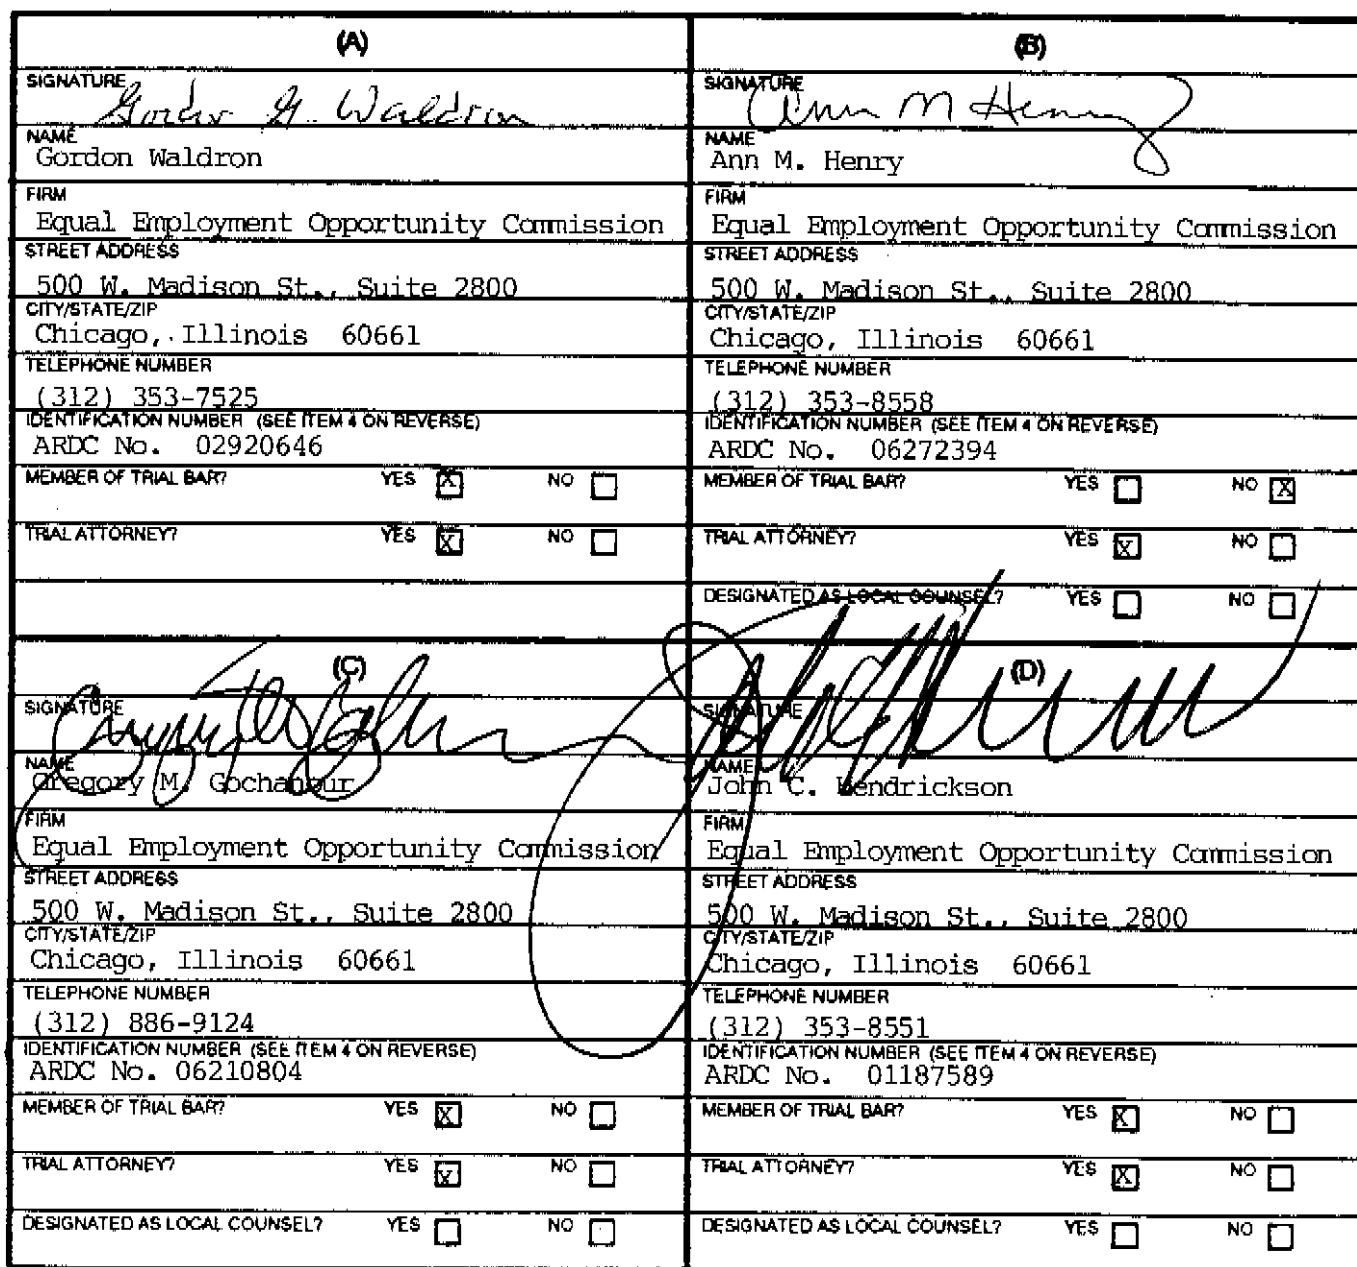 (A)
SIGNATURE Gordon G. Waldron
NAME
Gordon Waldron
FIRM
Equal Employment Opportunity Commission
STREET ADDRESS
500 W. Madison St., Suite 2800
CITY/STATE/ZIP
Chicago, Illinois 60661
TELEPHONE NUMBER
(312) 353-7525
IDENTIFICATION NUMBER (SEE ITEM 4 ON REVERSE)
ARDC No. 02920646
MEMBER OF TRIAL BAR? YES X NO
TRIAL ATTORNEY? YES X NO
(B)
SIGNATURE Ann M Henry
NAME
Ann M. Henry
FIRM
Equal Employment Opportunity Commission
STREET ADDRESS
500 W. Madison St., Suite 2800
CITY/STATE/ZIP
Chicago, Illinois 60661
TELEPHONE NUMBER
(312) 353-8558
IDENTIFICATION NUMBER (SEE ITEM 4 ON REVERSE)
ARDC No. 06272394
MEMBER OF TRIAL BAR? YES NO X
TRIAL ATTORNEY? YES X NO
DESIGNATED AS LOCAL COUNSEL? YES NO
(C)
SIGNATURE
NAME
Gregory M. Gochanour
FIRM
Equal Employment Opportunity Commission
STREET ADDRESS
500 W. Madison St., Suite 2800
CITY/STATE/ZIP
Chicago, Illinois 60661
TELEPHONE NUMBER
(312) 886-9124
IDENTIFICATION NUMBER (SEE ITEM 4 ON REVERSE)
ARDC No. 06210804
MEMBER OF TRIAL BAR? YES X NO
TRIAL ATTORNEY? YES X NO
DESIGNATED AS LOCAL COUNSEL? YES NO
(D)
SIGNATURE
NAME
John C. Hendrickson
FIRM
Equal Employment Opportunity Commission
STREET ADDRESS
500 W. Madison St., Suite 2800
CITY/STATE/ZIP
Chicago, Illinois 60661
TELEPHONE NUMBER
(312) 353-8551
IDENTIFICATION NUMBER (SEE ITEM 4 ON REVERSE)
ARDC No. 01187589
MEMBER OF TRIAL BAR? YES X NO
TRIAL ATTORNEY? YES X NO
DESIGNATED AS LOCAL COUNSEL? YES NO